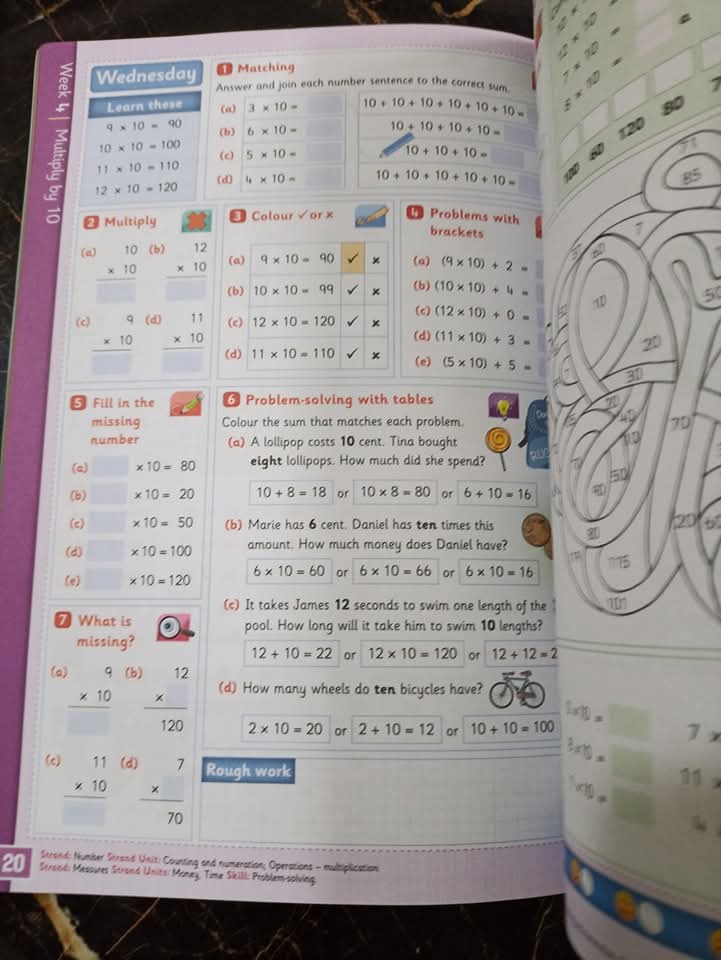 Week 4 | Multiply by 10
Wednesday
Learn these
9 × 10 = 90
10 × 10 = 100
11 × 10 = 110
12 × 10 = 120
1 Matching
Answer and join each number sentence to the correct sum.
(a) 3 × 10 =
(b) 6 × 10 =
(c) 5 × 10 =
(d) 4 × 10 =
10 + 10 + 10 + 10 + 10 + 10 =
10 + 10 + 10 + 10 =
10 + 10 + 10 =
10 + 10 + 10 + 10 + 10 =
2 Multiply
(a) 10 (b) 12
× 10 × 10
(c) 9 (d) 11
× 10 × 10
3 Colour ✓ or ×
(a) 9 × 10 = 90 ✓ ×
(b) 10 × 10 = 99 ✓ ×
(c) 12 × 10 = 120 ✓ ×
(d) 11 × 10 = 110 ✓ ×
4 Problems with
brackets
(a) (9 × 10) + 2 =
(b) (10 × 10) + 4 =
(c) (12 × 10) + 0 =
(d) (11 × 10) + 3 =
(e) (5 × 10) + 5 =
5 Fill in the
missing
number
(a) × 10 = 80
(b) × 10 = 20
(c) × 10 = 50
(d) × 10 = 100
(e) × 10 = 120
6 Problem-solving with tables
Colour the sum that matches each problem.
(a) A lollipop costs 10 cent. Tina bought
eight lollipops. How much did she spend?
10 + 8 = 18 or 10 × 8 = 80 or 6 + 10 = 16
(b) Marie has 6 cent. Daniel has ten times this
amount. How much money does Daniel have?
6 × 10 = 60 or 6 × 10 = 66 or 6 × 10 = 16
(c) It takes James 12 seconds to swim one length of the
pool. How long will it take him to swim 10 lengths?
12 + 10 = 22 or 12 × 10 = 120 or 12 + 12 = 2
(d) How many wheels do ten bicycles have?
2 × 10 = 20 or 2 + 10 = 12 or 10 + 10 = 100
7 What is
missing?
(a) 9 (b) 12
× 10 ×
120
(c) 11 (d) 7
× 10 ×
70
Rough work
20
Strand: Number Strand Unit: Counting and numeration; Operations – multiplication
Strand: Measures Strand Units: Money, Time Skill: Problem-solving.
12 × 10 =
7 × 10 =
100 60 120 80
71
85
7
60
10
20
30
70
115
101
7 ×
11 ×